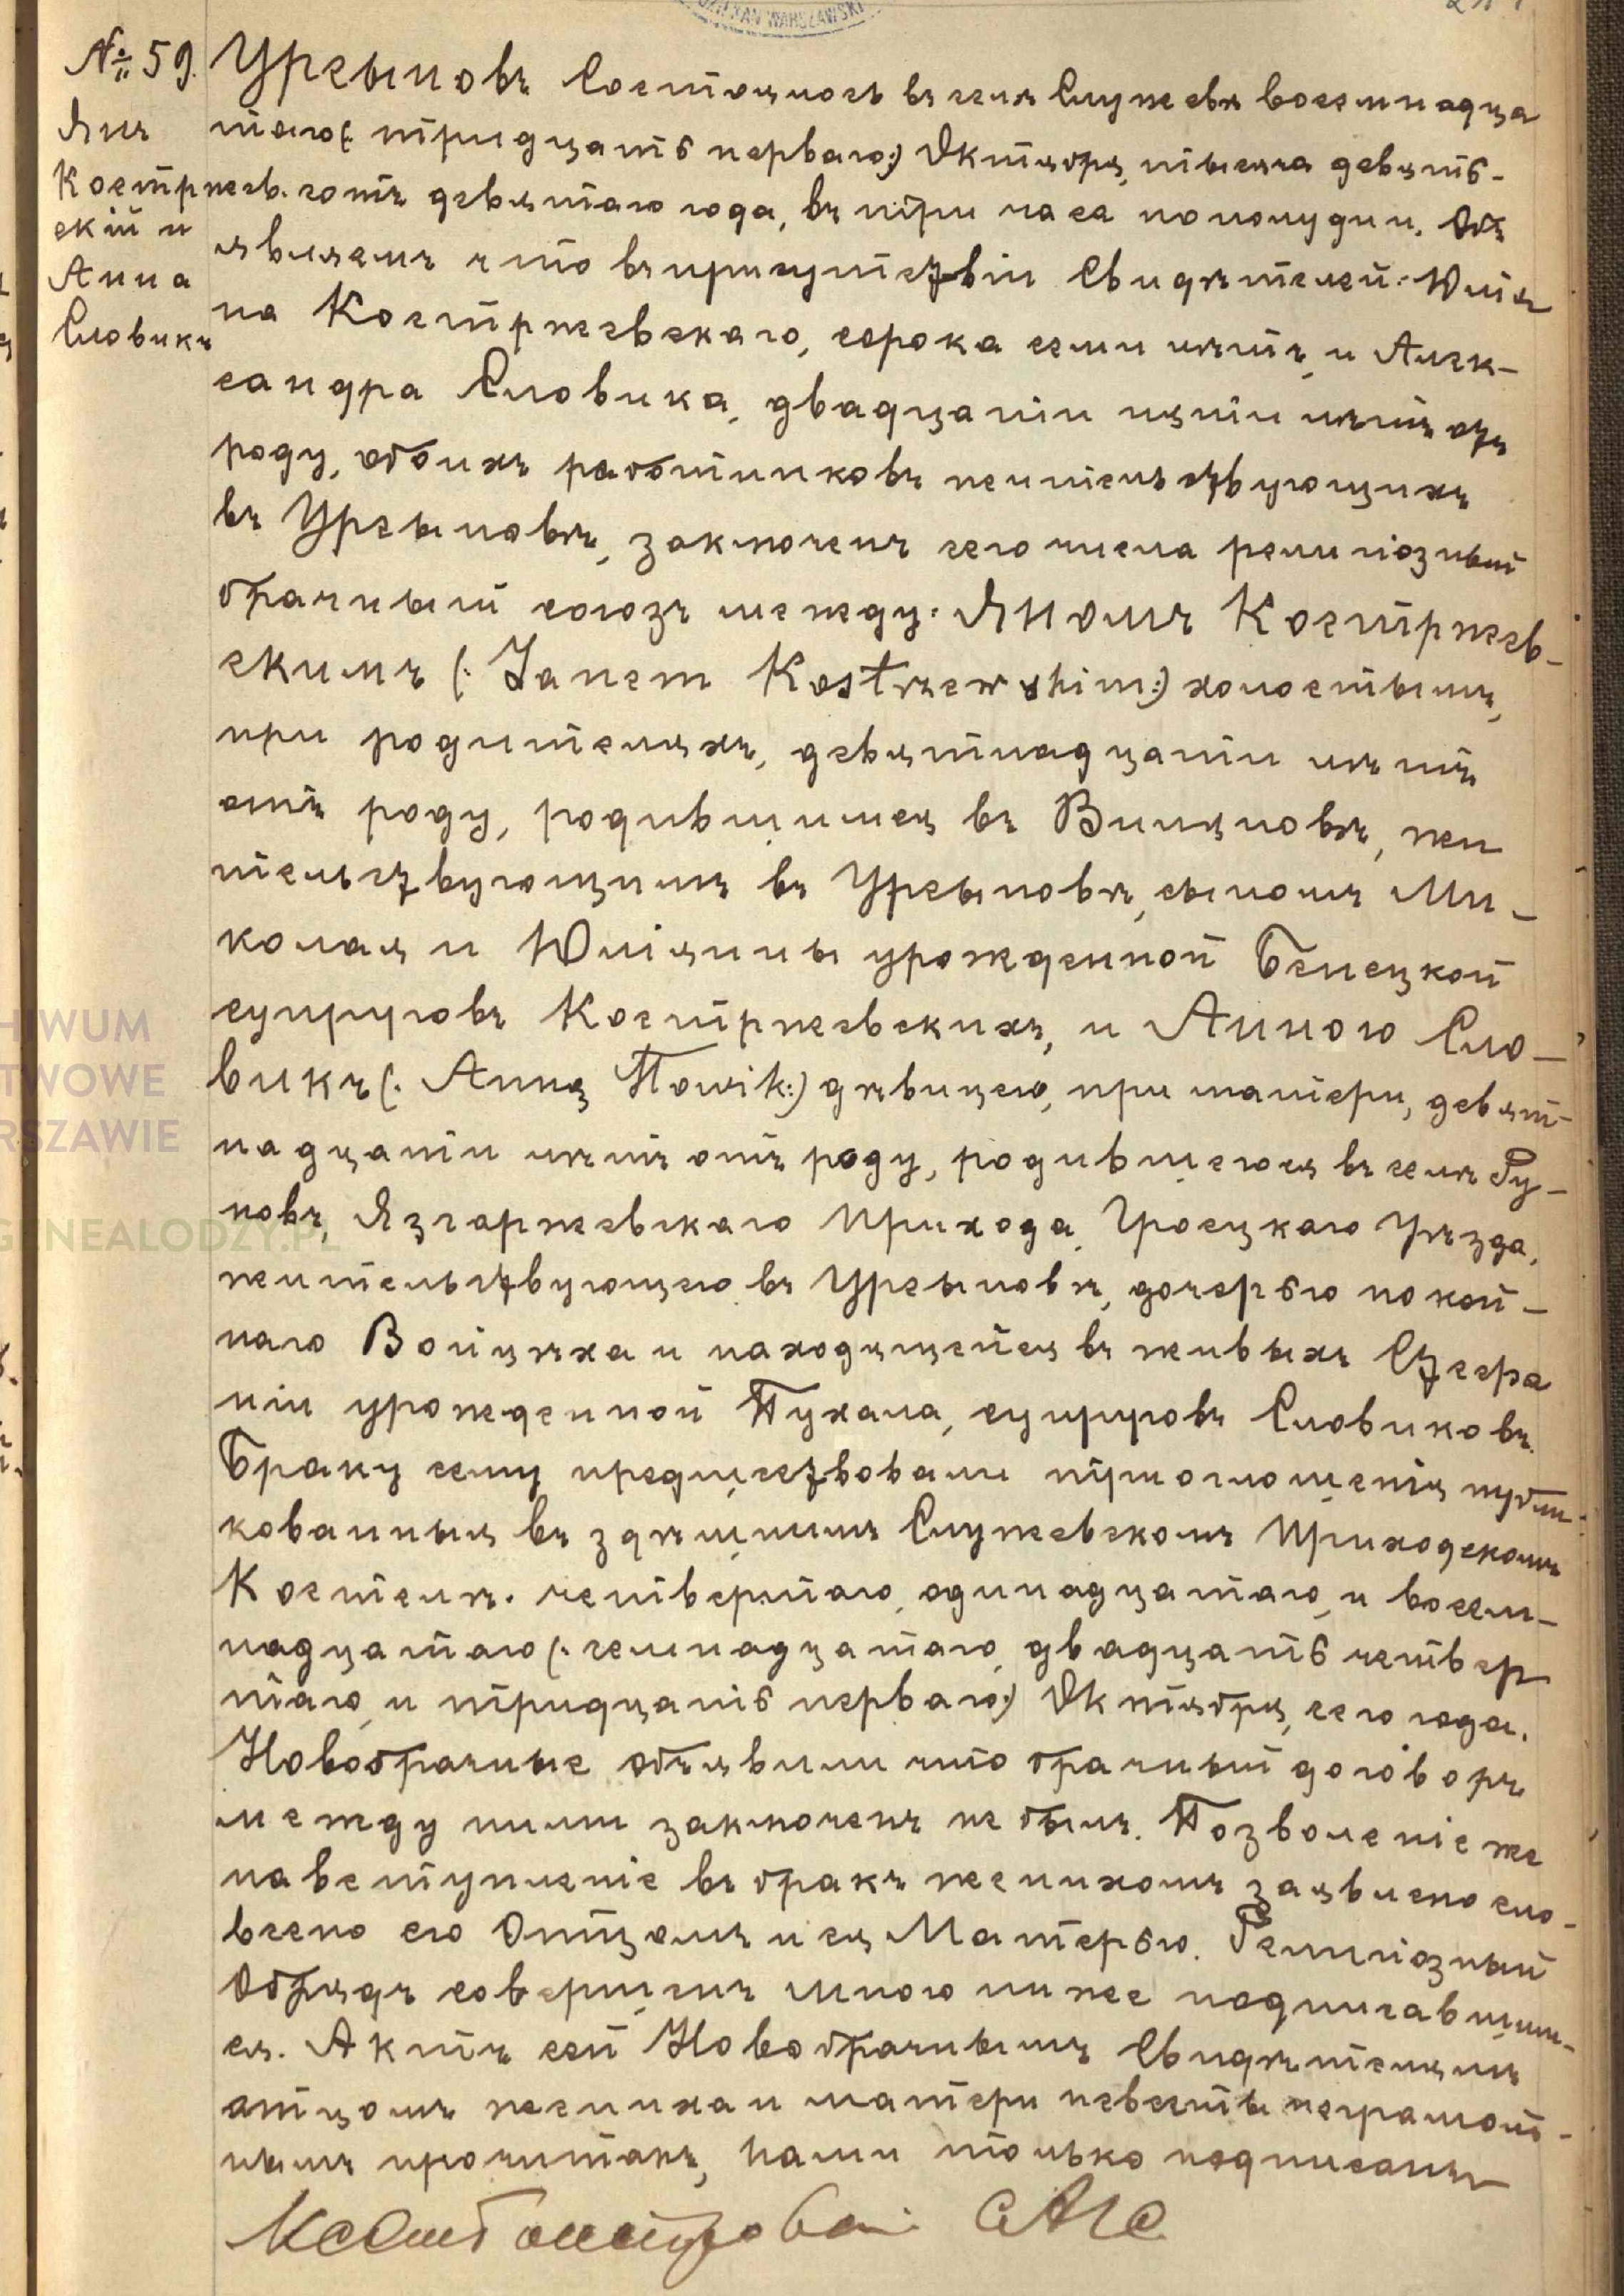 № 59.
Янъ
Костржев.
скій и
Анна
Словикъ
Урсыновъ Состоялось въ селѣ Служевѣ восемнадца
таго (: тридцать перваго:) Октября, тысяча девять-
сотъ девятаго года, въ три часа пополудни. Объ
являемъ что въ присутствіи Свидѣтелей: Юлія
на Костржевскаго, сорока семи лѣтъ, и Алек-
сандра Словика, двадцати пяти лѣтъ отъ
роду, обоихъ работниковъ жительствующихъ
въ Урсыновѣ, заключенъ сего числа религіозный
брачный союзъ между: Яномъ Костржев-
скимъ (: Janem Kostrzewskim:) холостымъ,
при родителяхъ, девятнадцати лѣтъ
отъ роду, родившимся въ Виляновѣ, жи
тельствующимъ въ Урсыновѣ, сыномъ Ми-
колая и Юліянны урожденной Бенецкой
супруговъ Костржевскихъ, и Анною Сло-
викъ (: Anną Słowik:) дѣвицею, при матери, девят-
надцати лѣтъ отъ роду, родившеюся въ селѣ Ру-
новѣ, Язгаржевскаго Прихода, Гроецкаго Уѣзда,
жительствующею въ Урсыновѣ, дочерью покой-
наго Войцѣха и находящейся въ живыхъ Стефа
ніи урожденной Пухала, супруговъ Словиковъ.
Браку сему предшествовали три оглошенія публи-
кованныя въ здѣшнимъ Служевскомъ Приходскомъ
Костелѣ: четвертаго, одинадцатаго, и восем-
надцатаго (: семнадцатаго, двадцать четвер
таго, и тридцать перваго:) Октября, сего года.
Новобрачные объявили что брачный договоръ
между ними заключенъ не былъ. Позволеніе же
на вступленіе въ бракъ женихомъ заявлено сло-
весно его Отцомъ и ея Матерью. Религіозный
Обрядъ совершенъ мною ниже подписавшим-
ся. Актъ сей Новобрачнымъ Свидѣтелямъ
отцомъ жениха и матери невесты неграмот-
нымъ прочитанъ, нами только подписанъ